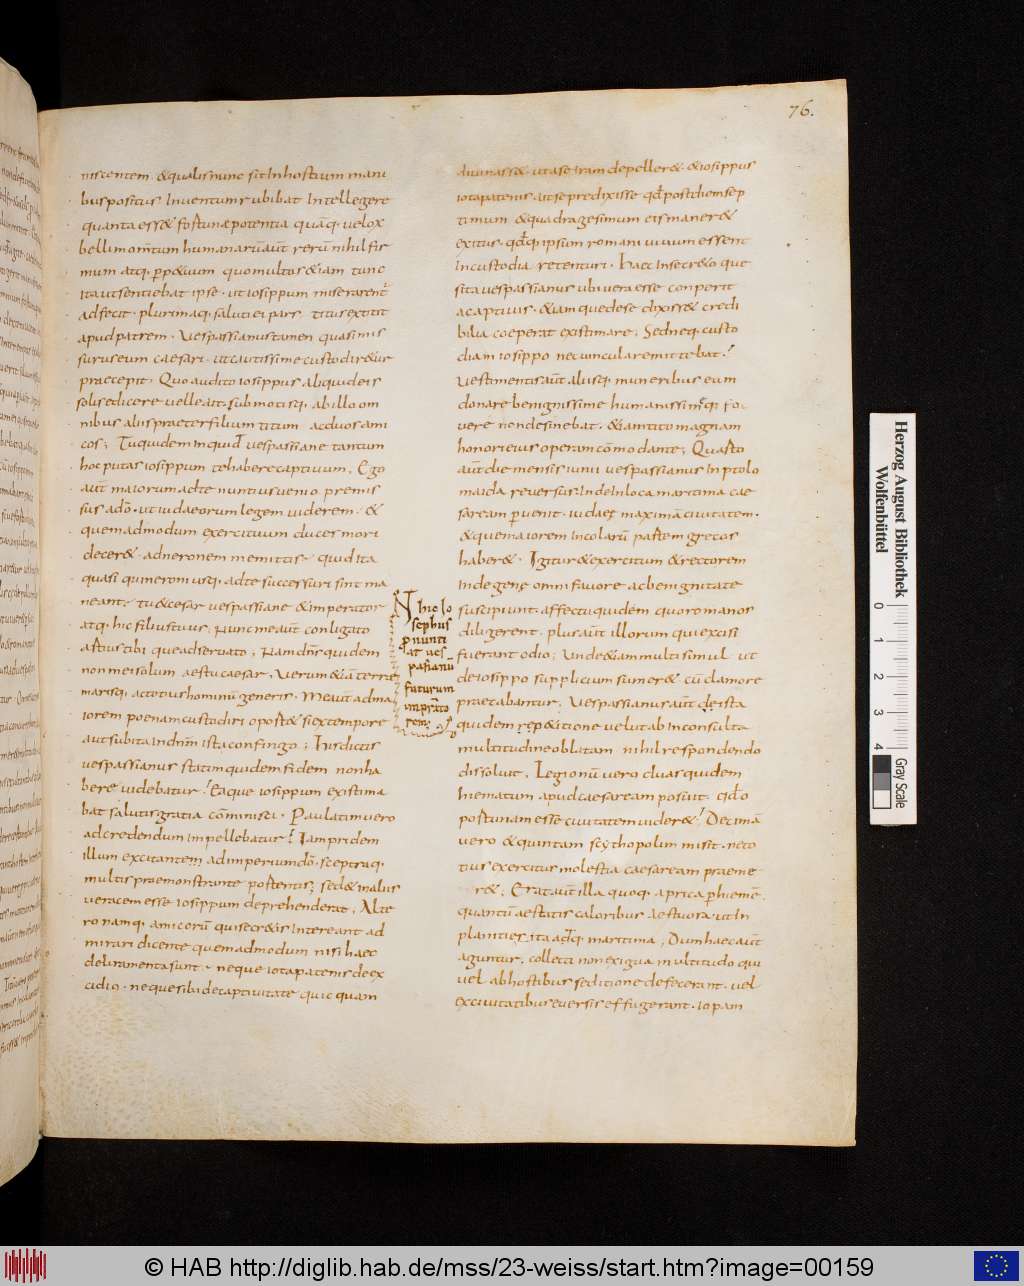 76.
niscentem. &qualis nunc sit In hostium mani
bus positus Inventum ubi bat Intellegere
quanta ess& fortunæ potentia quāq. velox
belli momtum humanarū aūt rerū nihil fir
mum atq. p&uum quo multos &iam tunc
ita ut sentiebat ipse. ut iosippum miserarent
adfecit. plurimaq. saluti ei pars titus extitit
apud patrem. Vespassianus tamen quasi mis
surus eum caesari. ut cautissime custodir&ur
praecepit. Quo audito iosippus aliquid eis
solis edicere velle ait. submotisq. ab illo om
nibus aliis praeter filium titum ac duos ami
cos; Tu quidem inquid vespassiane tantum
hoc putas iosippum te habere captivum. Ego
aūt maiorum ad te nuntius uenio premis
sus a dō. ut iudaeorum legem uiderem. &
quemadmodum exercituum duces mori
decer&. ad neronem me mittis. quid ita
quasi qui neroni usq. ad te successuri sint ma
neant. tu & cesar vespassiane & imperator
atq. hic filius tuus. Nunc me aūt conligato
astius tibi que adseruato; Nam dn̄s quidem
non mei solum aestu caesar, Verum &iā terre
marisq. ac totius hominū generis. Me aūt ad ma
iorem poenam custodiri oport& si ex tempore
aut subita In dnm ista confingo; His dictis
vespassianus statim quidem fidem non ha
bere videbatur! Eaque iosippum existima
bat salutis gratia cōminisci. Paulatim vero
ad credendum impellebatur! Iam pridem
illum excitantem ad imperiundō. sceptraq.
multis praemonstrante portentis; sed & in aliis
veracem esse iosippum deprehenderat. Alte
ro namq. amicorū qui secr&is Intereant ad
mirari dicente quemadmodum nisi haec
deliramenta sunt. neque iotapatenis de ex
cidio. neque sibi de captivitate quicquam
N hic Io
sephus
p nunti
at ves
pasianū
futurum
imprato
rem;
diuinass& ut a se iram depeller&. & iosippus
iotapatenis ait se predixisse qđ post diem sep
timum & quadragesimum eis maner&
exitus. qđq. ipsum romani uiuum essent
In custodia retenturi. Haec In secr&o que
sita vespassianus ubi vera esse comperit
a captiuis. &iam que de se dixiss& credi
bilia coeperat existimare; Sed neq. custo
diam iosippo nec uincula remittebat!
Vestimentis aūt aliisq. muneribus eum
donare benignissime humanissimeq. fo
vere non desinebat. &iam tito magnam
honori eius operam cōmodante; Quarto
aūt die mensis iunii vespassianus In ptolo
maida reversus. Inde In loca maritima cae
saream pervenit. iudaeę maximā ciuitatem.
& quae maiorem Incolarū partem grecos
haber&. Igitur & exercitum & rectorem
Indegenę omni favore ac benignitate
suscipiunt. affectu quidem quo romanos
diligerent. plus aūt illorum qui excisi
fuerant odio; Unde &iam multi simul ut
de iosippo supplicium sumer& cū clamore
praecabantur; Vespassianus aūt de ista
quidem rep&itione velut ab Inconsulta
multitudine oblatam nihil respondendo
dissoluit. Legionū vero duas quidem
hiematum apud caesaream posuit. qđ o
portunam esse ciuitatem uider&! Decimā
vero & quintam scythopolim misit. ne to
tius exercitus molestia caesaream praeme
r&; Erat aūt illa quoq. aprica p hiemē.
quantū aestatis caloribus aestuosa ut In
planities ita adq. maritima; Dum haec aūt
aguntur. collecti non exigua multitudo qui
vel ab hostibus seditione defecerant. vel
ex ciuitatibus eversis effugerant. iopam
Herzog August Bibliothek
Wolfenbüttel
0 1 2 3 4
Gray Scale
© HAB http://diglib.hab.de/mss/23-weiss/start.htm?image=00159